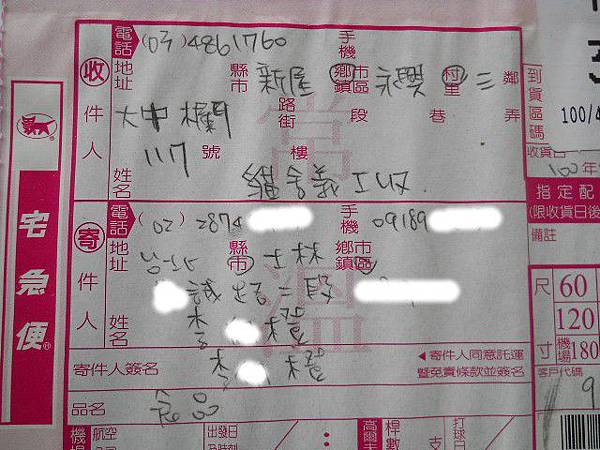 電話 (03) 4861760 手機
收件人 地址 縣市 新屋 鄉鎮市區 永興 村里 三 鄰
大中欄 路街 段 巷 弄
117 號 樓
姓名 貓舍義工收
到貨區碼
100/4
收貨日
100年
寄件人 電話 (02) 2874 手機 09189
地址 台北 縣市 士林 鄉鎮市區
誠路二段
姓名 李 橙
寄件人簽名 李 橙
◀寄件人同意託運暨免責條款並簽名
品名 食品
宅急便®
指定配
(限收貨日後
備註
尺寸 60
120
機場180
客戶代碼
9
航空
出發日及時刻
高爾夫
桿數
支
打球日
常溫